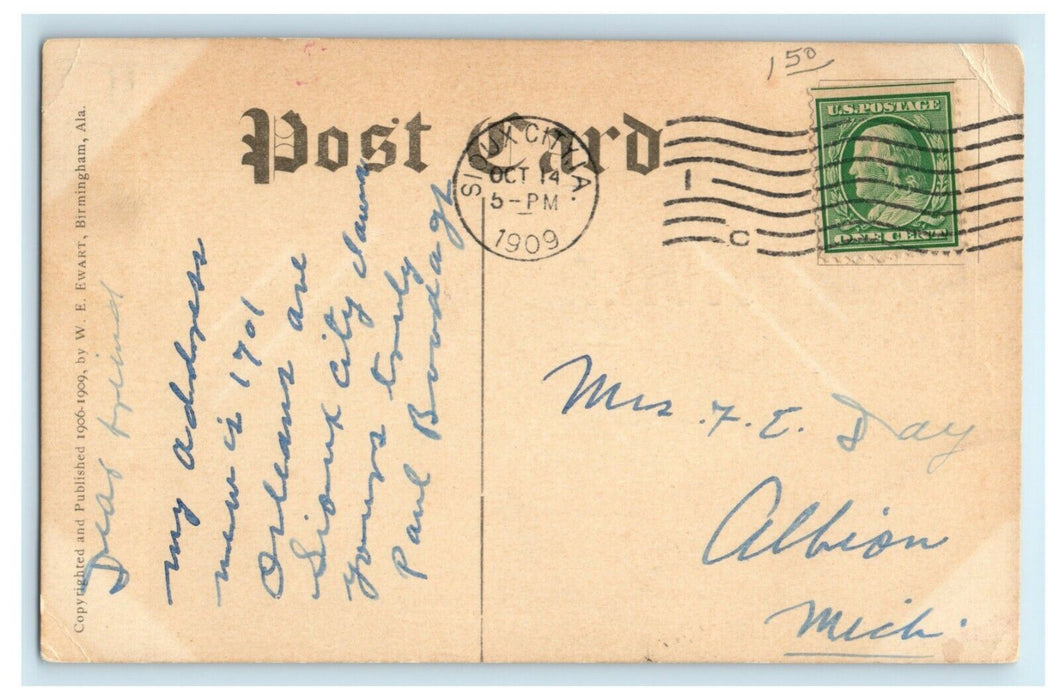 1 50
U.S. POSTAGE
ONE CENT
Post Card
SIOUX CITY, IA.
OCT 14
5-PM
1909
1
C
Copyrighted and Published 1906-1909, by W. E. EWART, Birmingham, Ala.
Dear friend
my address
now is 1701
Orleans ave
Sioux City Iowa
yours truly
Paul
Mrs. F. E. Day
Albion
Mich.